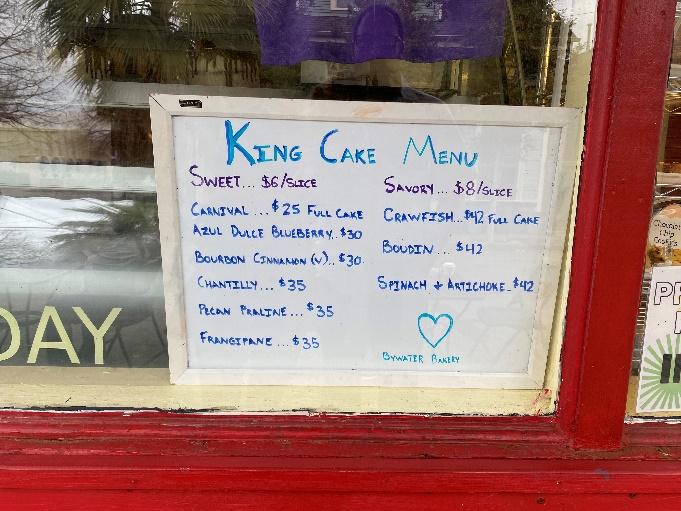 KING CAKE MENU
SWEET... $6/SLICE
CARNIVAL ... $25 FULL CAKE
AZUL DULCE BLUEBERRY..$30
BOURBON CINNAMON (V)..$30
CHANTILLY...$35
PECAN PRALINE...$35
FRANGIPANE...$35
SAVORY... $8/SLICE
CRAWFISH...$42 FULL CAKE
BOUDIN ... $42
SPINACH + ARTICHOKE..$42
BYWATER BAKERY
DAY
Chocolate
Chip
Cookies